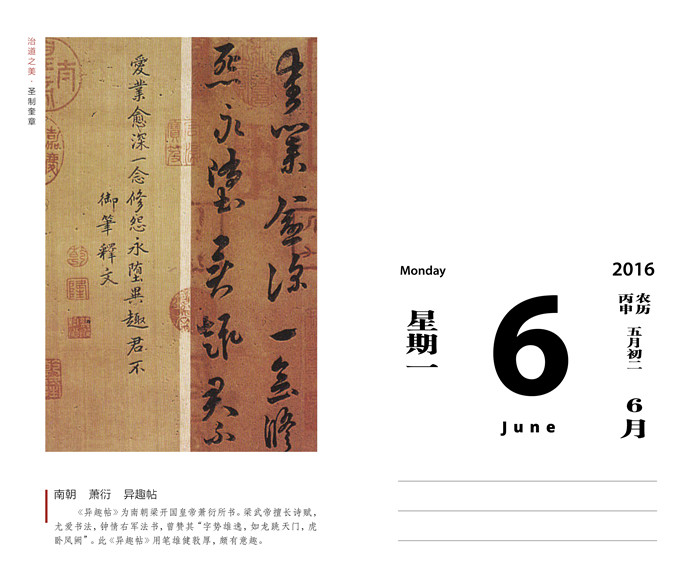 治道之美·圣制奎章
爱业愈深一念
修怨永堕异趣君不
愛業愈深一念修怨永堕異趣君不
御筆釋文
南朝 萧衍 异趣帖
《异趣帖》为南朝梁开国皇帝萧衍所书。梁武帝擅长诗赋,
尤爱书法,钟情右军法书,曾赞其“字势雄逸,如龙跳天门,虎
卧凤阙”。此《异趣帖》用笔雄健敦厚,颇有意趣。
Monday
2016
星期一
6
June
农历
丙申
五月初二
6月